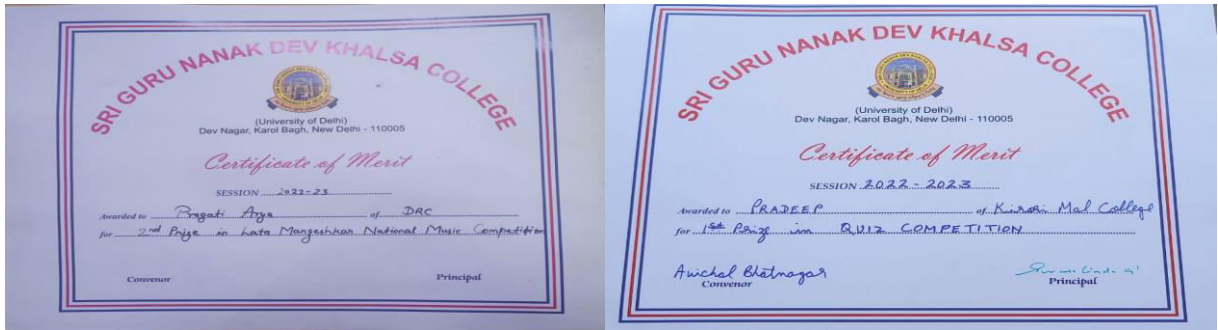 SRI GURU NANAK DEV KHALSA COLLEGE
(University of Delhi)
Dev Nagar, Karol Bagh, New Delhi - 110005
Certificate of Merit
SESSION 2022-23
Awarded to Pragati Arya of DRC
for 2nd Prize in Lata Mangeshkar National Music Competition
Convenor Principal
SRI GURU NANAK DEV KHALSA COLLEGE
(University of Delhi)
Dev Nagar, Karol Bagh, New Delhi - 110005
Certificate of Merit
SESSION 2022-2023
Awarded to PRADEEP of Kirori Mal College
for 1st Prize in QUIZ COMPETITION
Avichal Bhatnagar
Convenor Principal